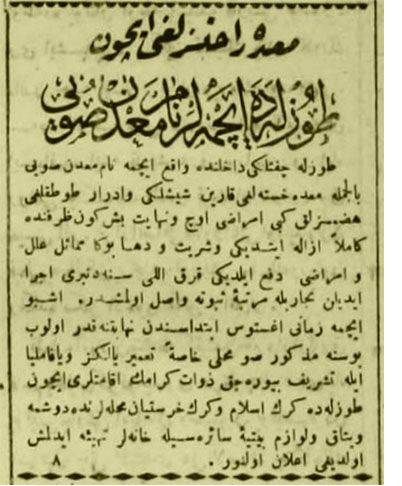 معده راحتسزلغی ایچون
طوزلەدە ایچمەلر نام معدن صویی
طوزله چفتلكی داخلنده واقع ایچمه نام معدن صویی
بالجمله معده خسته لغی قارین شیشلكی وادرار طوطقلغی
هضمسزلق كبی امراضی اوچ ونهایت بش كون ظرفنده
كاملاً ازاله ایتدیكی وشربت و دها بوكا مماثل علل
و امراضی دفع ایلدیكی قرق اللی سنه دنبری اجرا
ایدیلن تجاربله مرتبۀ ثبوته واصل اولمشدر. اشبو
ایچمه زمانی اغستوس ابتداسندن نهایتنه قدر اولوب
بوسنه مذكور صو محلی خاصةً تعمیر یالكز ویافامیلیا
ایله تشریف بیوره جق ذوات كرامك اقامتلری ایچون
طوزله ده كرك اسلام وكرك خرستیان محله لرنده دوشمه
ویتاق ولوازم بیتیۀ سائره سیله خانه لر تهیئه ایدلمش
اولدیغی اعلان اولنور . ٨